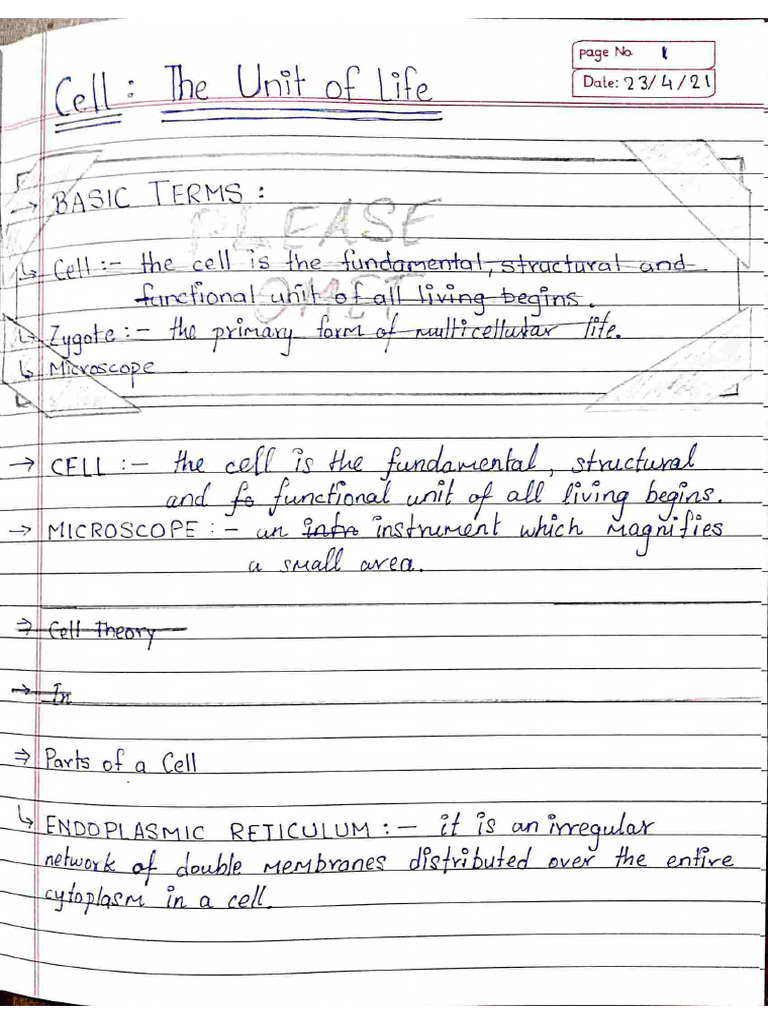 page No. 1
Date: 23/4/21
Cell : The Unit of Life
→ BASIC TERMS :
PLEASE
↳ Cell :- the cell is the fundamental, structural and
functional unit of all living begins.
OMIT
↳ Zygote :- the primary form of multicellular life.
↳ Microscope
→ CELL :- the cell is the fundamental, structural
and fo functional unit of all living begins.
→ MICROSCOPE :- an intr instrument which magnifies
a small area.
⇒ Cell Theory
→ In
⇒ Parts of a Cell
↳ ENDOPLASMIC RETICULUM :- it is an irregular
network of double membranes distributed over the entire
cytoplasm in a cell.